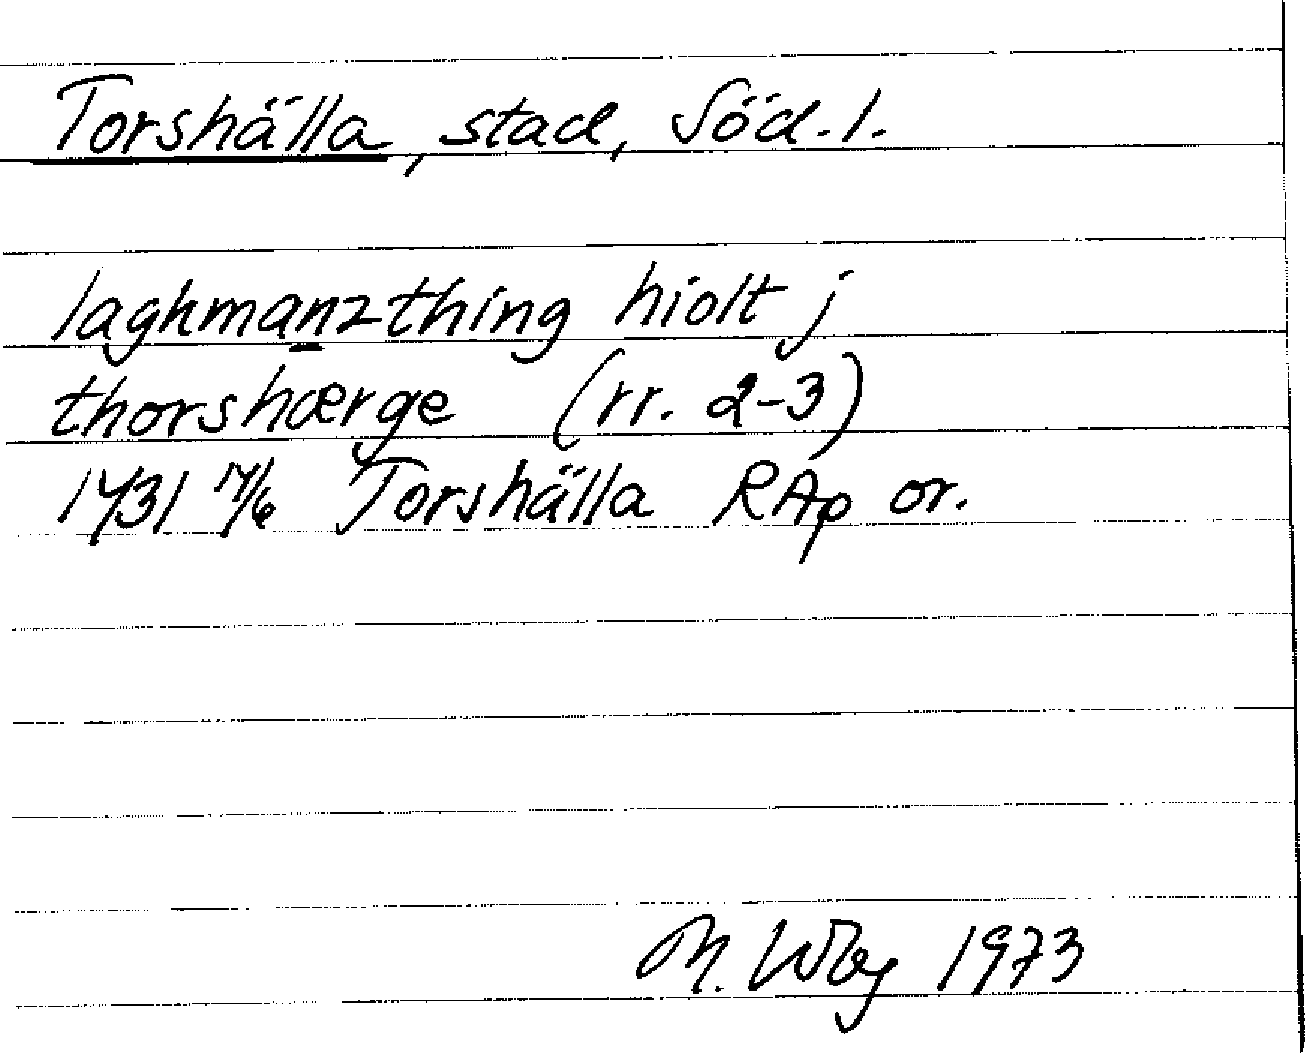 Torshälla, stad, Söd. l.
laghmanzthing hiolt j
thorshærge (rr. 2-3)
1431 14/6 Torshälla RAp or.
M. Wbg 1973